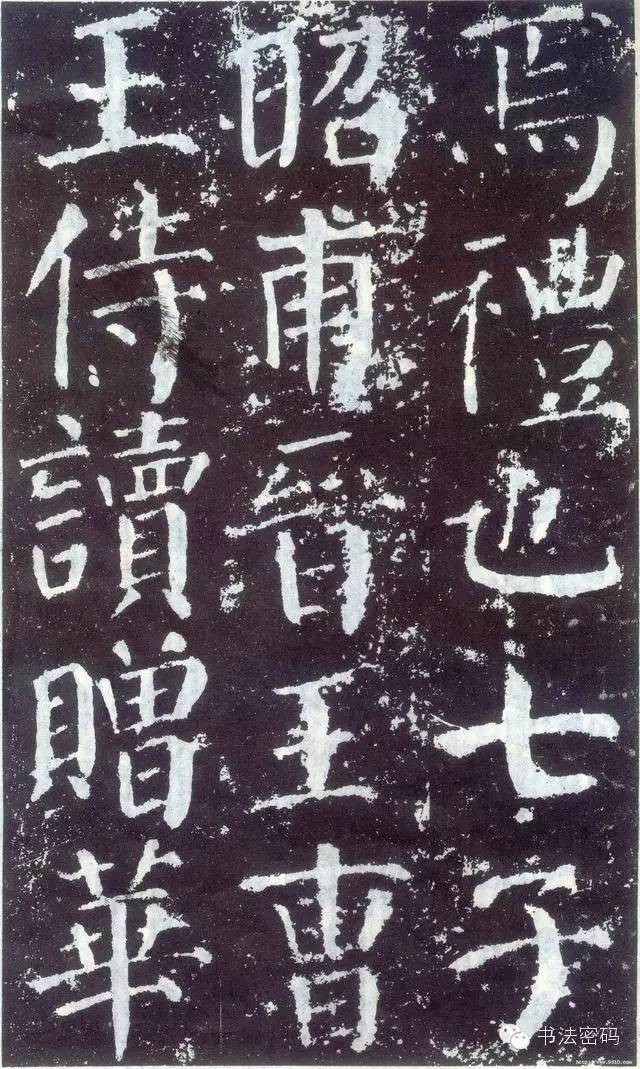 焉禮也七子
昭甫晉王曹
王侍讀贈華
书法密码
http://www.9610.com